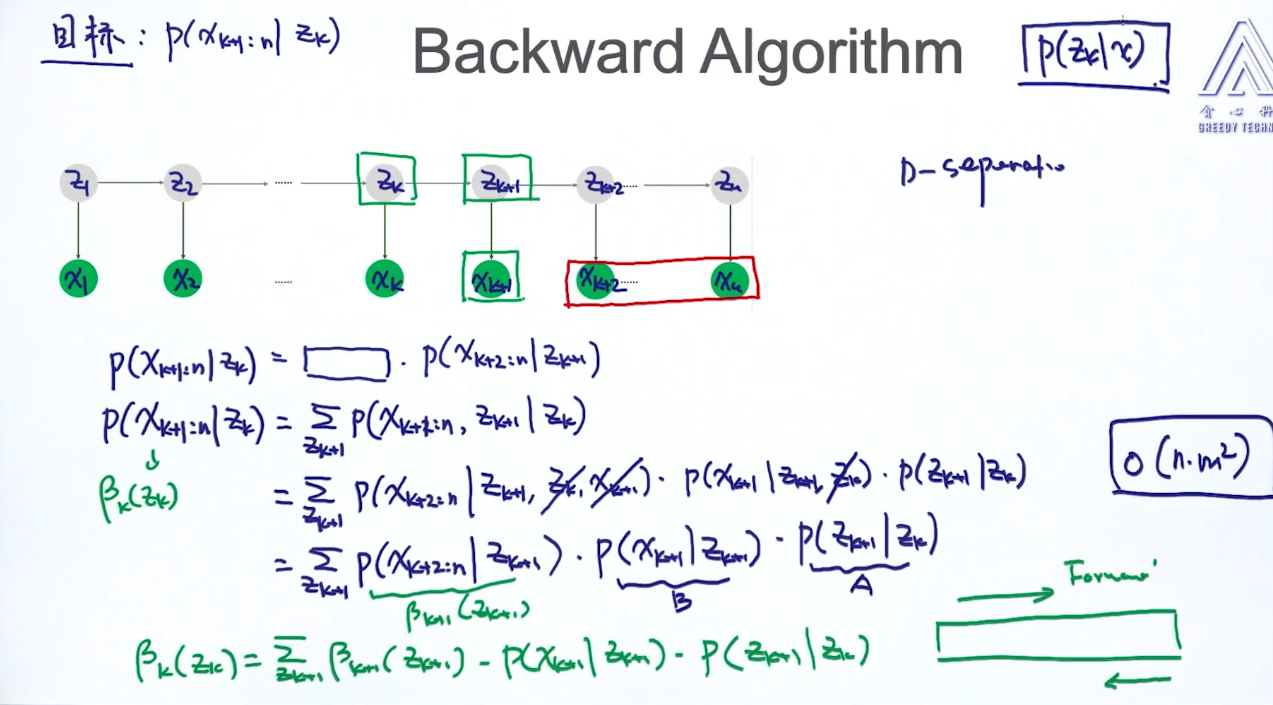 目标: p(x_{k+1:n}|z_k)
Backward Algorithm
p(z_k|x)
贪心科
GREEDY TECHN
D-separatio
z_1 z_2 ...... z_k z_{k+1} z_{k+2} ...... z_n
x_1 x_2 ...... x_k x_{k+1} x_{k+2} ...... x_n
p(x_{k+1:n}|z_k) = □ · p(x_{k+2:n}|z_{k+1})
p(x_{k+1:n}|z_k) = Σ_{z_{k+1}} p(x_{k+1:n}, z_{k+1}|z_k)
↓
β_k(z_k)
= Σ_{z_{k+1}} p(x_{k+2:n}|z_{k+1}, z_k, x_{k+1}) · p(x_{k+1}|z_{k+1}, z_k) · p(z_{k+1}|z_k)
O(n·m²)
= Σ_{z_{k+1}} p(x_{k+2:n}|z_{k+1}) · p(x_{k+1}|z_{k+1}) · p(z_{k+1}|z_k)
β_{k+1}(z_{k+1}) B A
β_k(z_k) = Σ_{z_{k+1}} β_{k+1}(z_{k+1}) - p(x_{k+1}|z_{k+1}) - p(z_{k+1}|z_k)